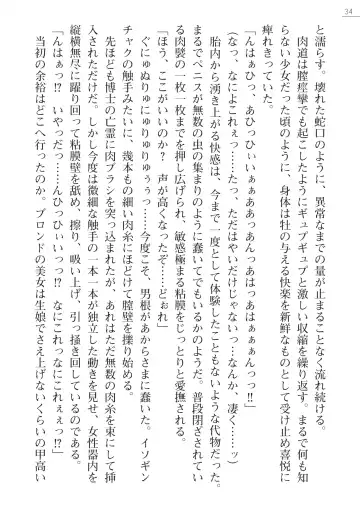 34
と濡らす。壊れた蛇口のように、異常なまでの量が止まることなく流れ続ける。
肉道は膣痙攣でも起こしたようにギュプギュプと激しい収縮を繰り返す。まるで何も知
らない少女だった頃のように、身体は牡の与える快楽を新鮮なものとして受け止め喜悦に
痺れきっていた。
「んはぁっひっ、あひっひぃいぁぁああっあんっあはっあはぁぁぁんっっ‼」
(なっ、なによこれぇっ……たっ、ただはやいだけじゃないっ……なんか、凄く……ッ)
胎内から湧き上がる快感は、今まで一度として体験したこともないような代物だった。
まるでペニスが無数の虫の集まりのようで、蠢いてでもいるかのようだ。普段閉ざされてい
る肉襞の一枚一枚までを押し広げられ、敏感極まる粘膜をじっとりと愛撫される。
「ほう、ここがいいのか? 声が高くなったぞ……どぉれ」
ぐにゅぬりゅにゅりゅりゅぅっ……今度こそ、男根があからさまに蠢いた。イソギン
チャクの触手みたいに、幾本もの細い肉糸にほどけて膣壁を擽り始める。
先ほども博士の亡霊に肉ブラシを突っ込まれたが、あれはただ無数の肉糸を中に挿し
入れただけだ。しかし今度は微細な触手の一本一本が独立した動きを見せ、女性器内を
縦横無尽に躍り回って粘膜壁を舐め、擦り、吸い上げ、引っ掻き回しているのである。
「んはぁっっ⁉ いやっだっ……んひっひぃいっっ! なにこれなにこれぇぇっ⁉」
当初の余裕はどこへ行ったのか。ブロンドの美女は生娘でさえ上げないくらいの甲高い